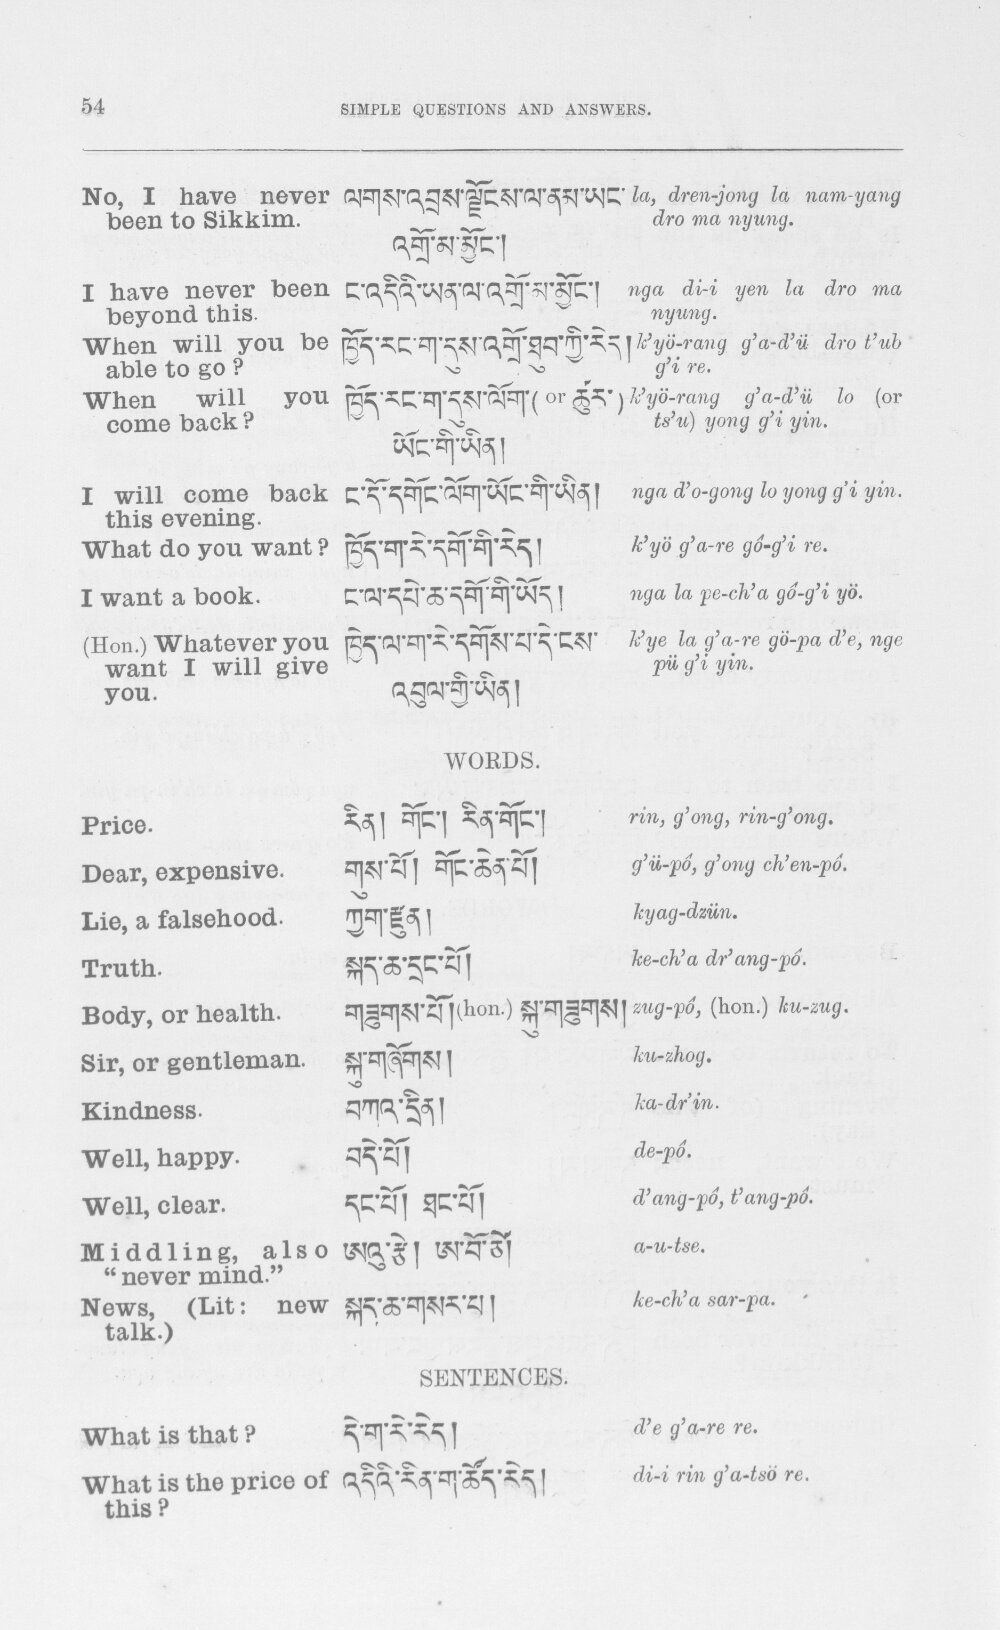 54 SIMPLE QUESTIONS AND ANSWERS.
No, I have never ལགས་འབྲས་ལྗོངས་ལ་ནམ་ཡང་ la, dren-jong la nam-yang
been to Sikkim. dro ma nyung.
འགྲོ་མ་མྱོང་།
I have never been ང་འདིའི་ཡན་ལ་འགྲོ་མ་མྱོང་། nga di-i yen la dro ma
beyond this. nyung.
When will you be ཁྱོད་རང་ག་དུས་འགྲོ་ཐུབ་ཀྱི་རེད། k'yö-rang g'a-d'ü dro t'ub
able to go? g'i re.
When will you ཁྱོད་རང་ག་དུས་ལོག་( or ཚུར་) k'yö-rang g'a-d'ü lo (or
come back? ts'u) yong g'i yin.
ཡོང་གི་ཡིན།
I will come back ང་དོ་དགོང་ལོག་ཡོང་གི་ཡིན། nga d'o-gong lo yong g'i yin.
this evening.
What do you want? ཁྱོད་ག་རེ་དགོ་གི་རེད། k'yö g'a-re gó-g'i re.
I want a book. ང་ལ་དཔེ་ཆ་དགོ་གི་ཡོད། nga la pe-ch'a gó-g'i yö.
(Hon.) Whatever you ཁྱེད་ལ་ག་རེ་དགོས་པ་དེ་ངས་ k'ye la g'a-re gö-pa d'e, nge
want I will give pü g'i yin.
you. འབུལ་གྱི་ཡིན།
WORDS.
Price. རིན། གོང་། རིན་གོང་། rin, g'ong, rin-g'ong.
Dear, expensive. གུས་པོ། གོང་ཆེན་པོ། g'ü-pó, g'ong ch'en-pó.
Lie, a falsehood. ཀྱག་རྫུན། kyag-dzün.
Truth. སྐད་ཆ་དྲང་པོ། ke-ch'a dr'ang-pó.
Body, or health. གཟུགས་པོ། (hon.) སྐུ་གཟུགས། zug-pó, (hon.) ku-zug.
Sir, or gentleman. སྐུ་གཞོགས། ku-zhog.
Kindness. བཀའ་དྲིན། ka-dr'in.
Well, happy. བདེ་པོ། de-pó.
Well, clear. དང་པོ། ཐང་པོ། d'ang-pó, t'ang-pó.
Middling, also ཨའུ་རྩེ། ཨ་བོ་ཙེ། a-u-tse.
"never mind."
News, (Lit: new སྐད་ཆ་གསར་པ། ke-ch'a sar-pa.
talk.)
SENTENCES.
What is that? དེ་ག་རེ་རེད། d'e g'a-re re.
What is the price of འདིའི་རིན་ག་ཚོད་རེད། di-i rin g'a-tsö re.
this?